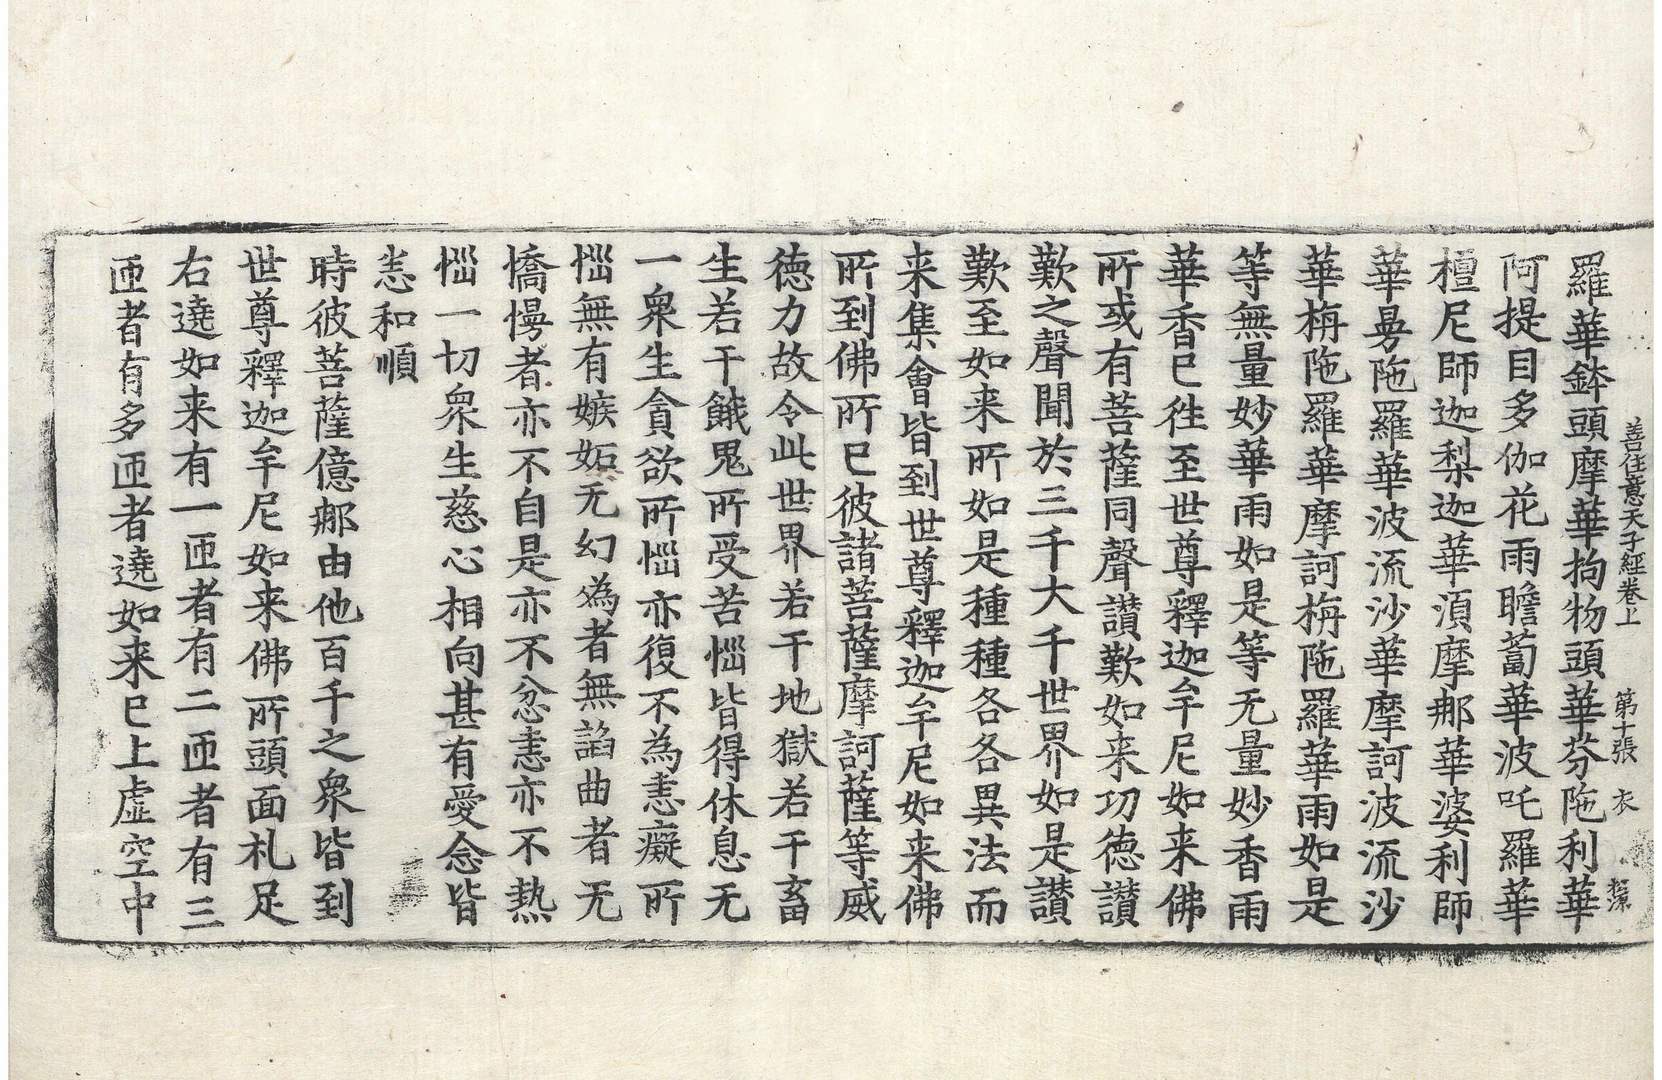 善住意天子經卷上　第十張　衣
羅華鉢頭摩華拘物頭華芬陁利華
阿提目多伽花雨瞻蔔華波吒羅華
檀尼師迦梨迦華湏摩那華婆利師
華曼陁羅華波流沙華摩訶波流沙
華栴陁羅華摩訶栴陁羅華雨如是
等無量妙華雨如是等无量妙香雨
華香已往至世尊釋迦牟尼如来佛
所或有菩薩同聲讃歎如来功德讃
歎之聲聞於三千大千世界如是讃
歎至如来所如是種種各各異法而
来集會皆到世尊釋迦牟尼如来佛
所到佛所已彼諸菩薩摩訶薩等威
德力故令此世界若干地獄若干畜
生若干餓鬼所受苦惱皆得休息无
一衆生貪欲所惱亦復不為恚癡所
惱無有嫉妬无幻為者無諂曲者无
憍慢者亦不自是亦不忿恚亦不熱
惱一切衆生慈心相向甚有愛念皆
恚和順
時彼菩薩億那由他百千之衆皆到
世尊釋迦牟尼如来佛所頭面札足
右遶如来有一匝者有二匝者有三
匝者有多匝者遶如来已上虚空中